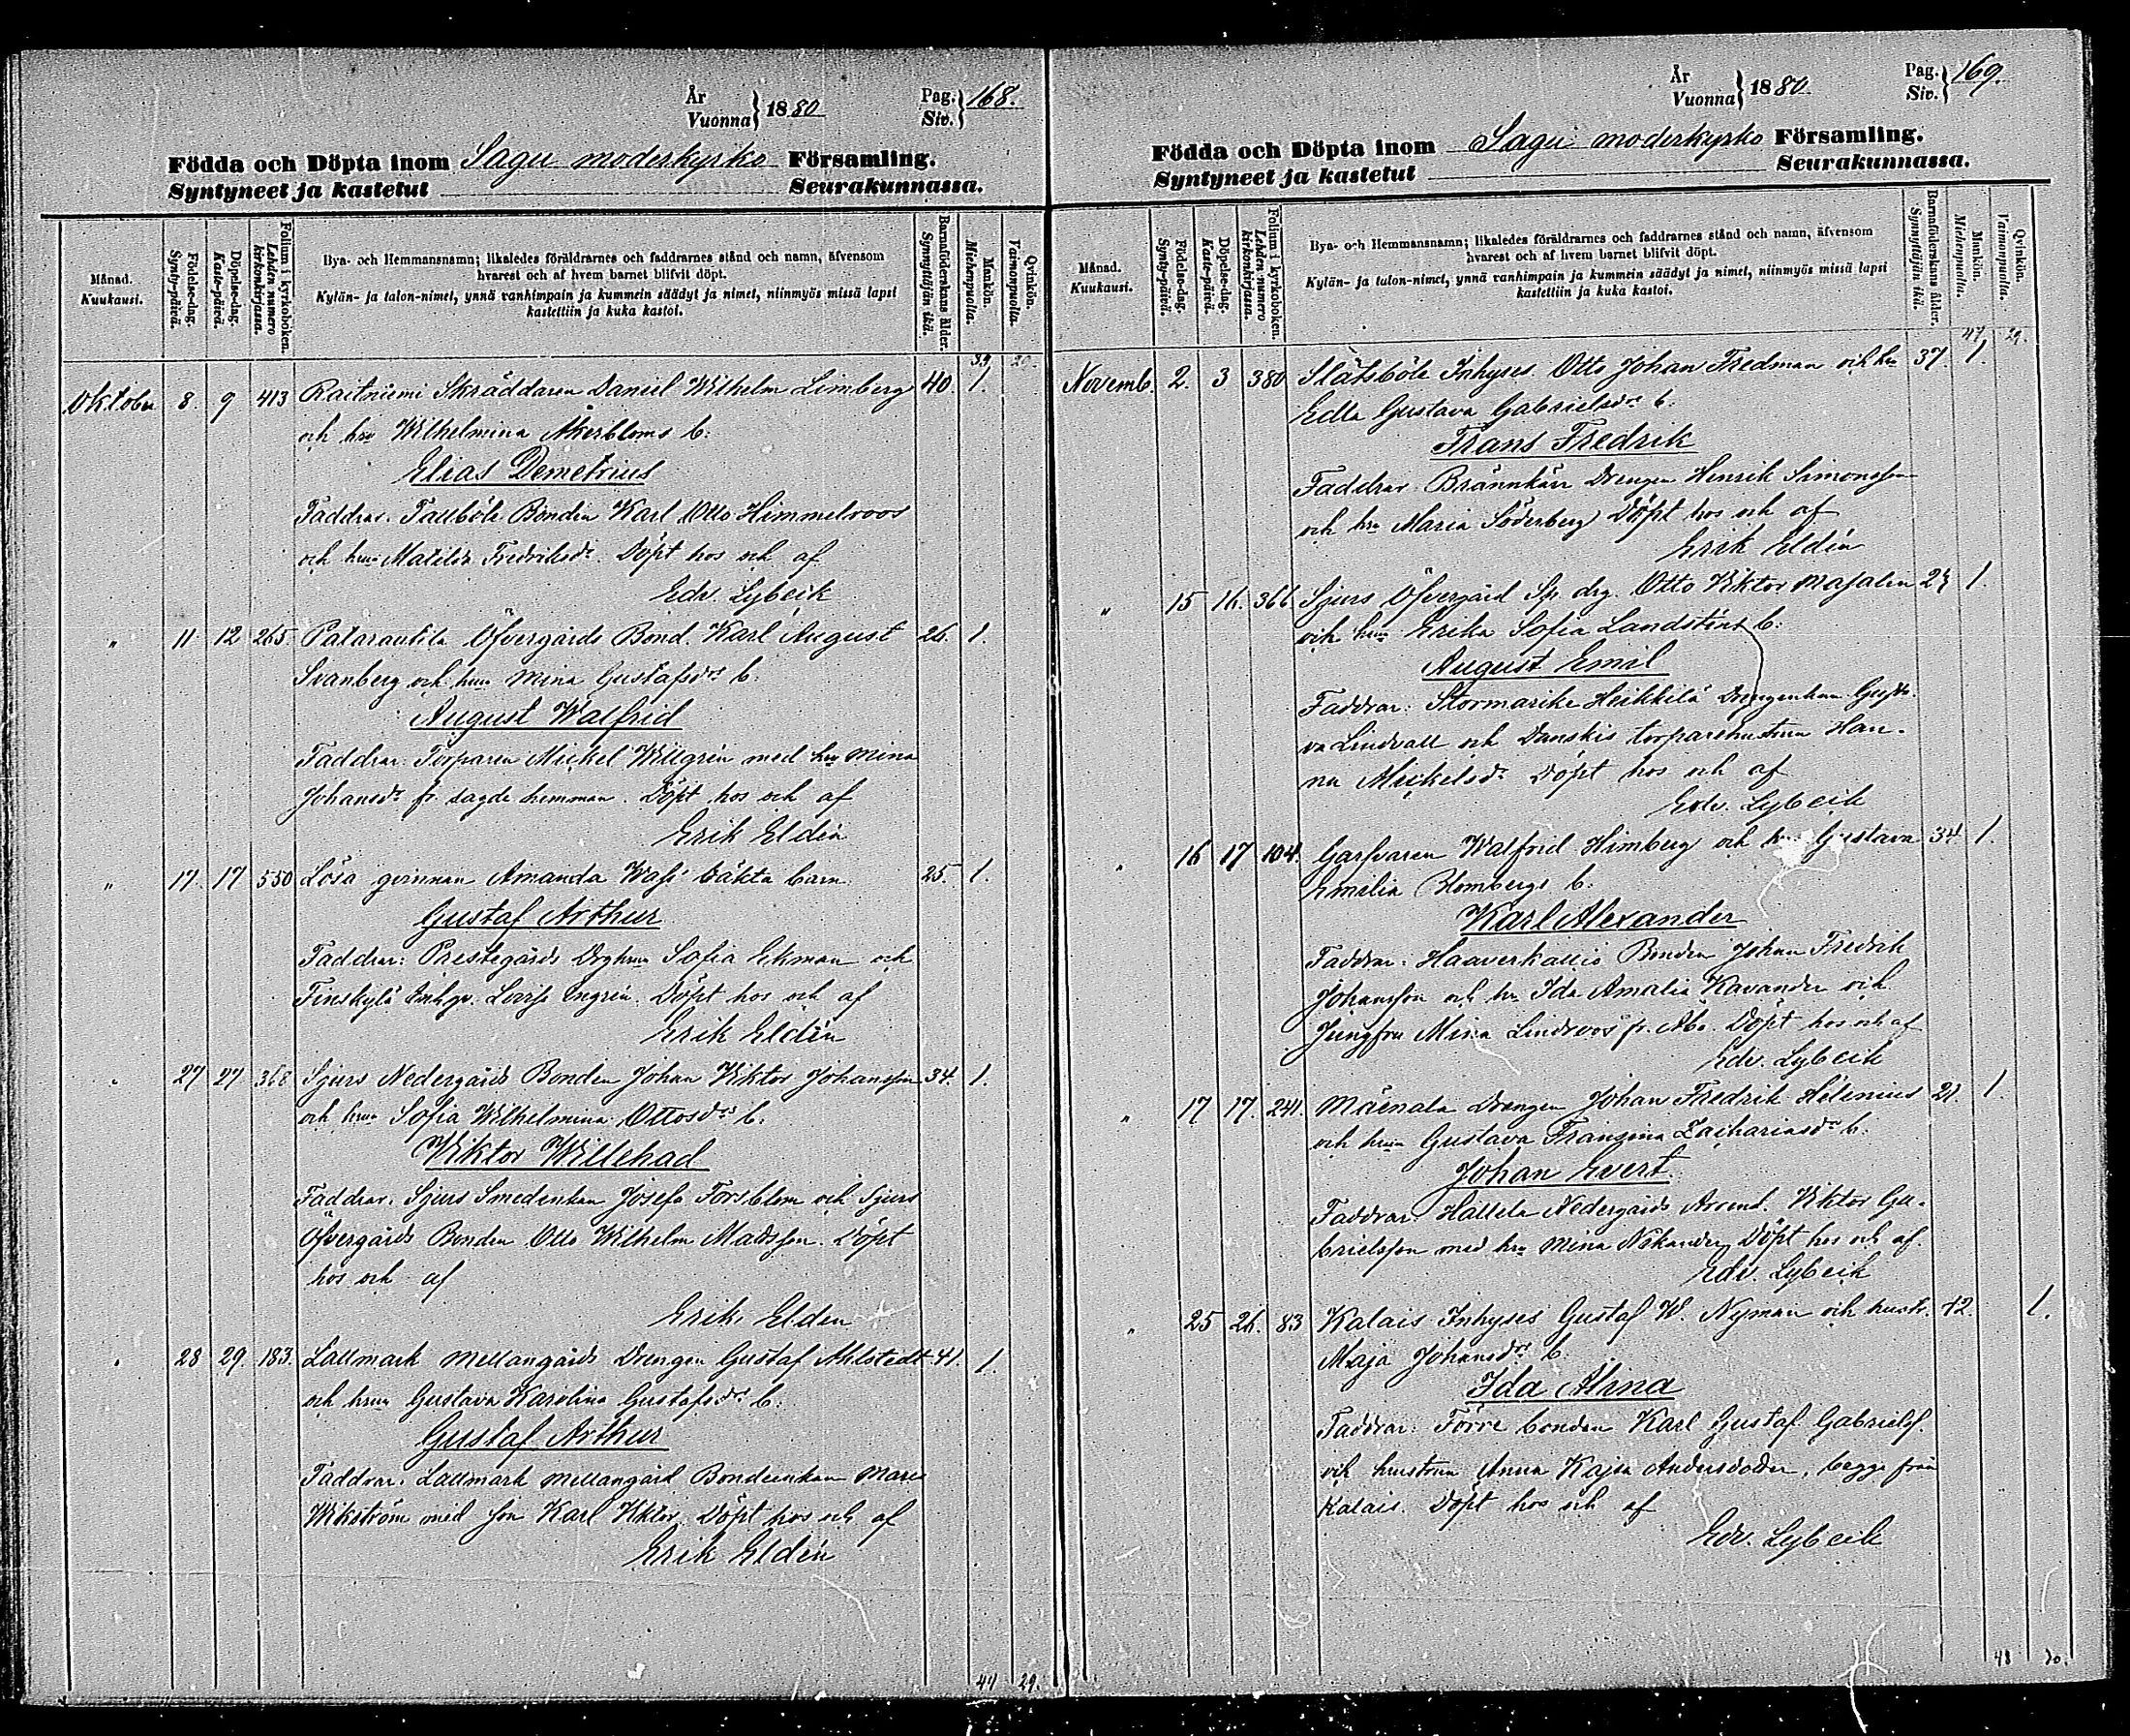 År
Vuonna } 1880
Pag.
Siv. } 168.
Födda och Döpta inom Sagu moderkyrko Församling.
Syntyneet ja kastetut Seurakunnassa.
Månad.
Kuukausi.
Födelse-dag.
Synty-päivä.
Döpelse-dag.
Kaste-päivä.
Folium i kyrkoboken.
Lehden numero kirkonkirjassa.
Bya- och Hemmansnamn; likaledes föräldrarnes och faddrarnes stånd och namn, äfvensom
hvarest och af hvem barnet blifvit döpt.
Kylän- ja talon-nimet, ynnä vanhimpain ja kummein säädyt ja nimet, niinmyös missä lapsi
kastettiin ja kuka kastoi.
Barnaföderskans ålder.
Synnyttäjän ikä.
Mankön.
Miehenpuolia.
Qvinkön.
Vaimonpuolia.
Oktober 8. 9 413 Raitniemi Skräddaren Daniel Wilhelm Limberg 40. 1.
och hru Wilhelmina Åkerbloms b:
Elias Demetrius
Faddrar. Tallböle Bonden Karl Otto Himmelroos
och hru Matilda Fredriksdr. Döpt hos och af
Edv. Lybeck
" 11 12 265 Patarautila Öfvergårds Bond. Karl August 26. 1.
Svanberg och hru Mina Gustafsdrs b.
August Walfrid
Faddrar. Torparen Mickel Willgrén med hru Mina
Johansdr fr. sagde hemman. Döpt hos och af
Erik Eldén
" 17. 17 550 Lösa qvinnan Amanda Wass' oäkta barn 25. 1.
Gustaf Arthur
Faddrar: Prestegårds Drghru Sofia Ekman och
Finskylä Lovisa Engrén. Döpt hos och af
Erik Eldén
" 27 27 368 Sjurs Nedergårds Bonden Johan Viktor Johansson 34. 1.
och hru Sofia Wilhelmina Ottosdrs b.
Viktor Willehad
Faddrar. Sjurs Smedenkan Josefa Forsblom och Sjurs
Öfvergårds Bonden Otto Wilhelm Madsson. Döpt
hos och af
Erik Eldén
" 28 29. 183. Lallmark Mellangårds Drengen Gustaf Ahlstedt 41. 1.
och hrus Gustava Karolina Gustafsdrs b.
Gustaf Arthur
Faddrar. Lallmark Mellangård Bondeenkan Maria
Wikström med son Karl Viktor. Döpt hos och af
Erik Eldén
44 29.
År
Vuonna } 1880
Pag.
Siv. } 169.
Födda och Döpta inom Sagu moderkyrko Församling.
Syntyneet ja kastetut Seurakunnassa.
Månad.
Kuukausi.
Födelse-dag.
Synty-päivä.
Döpelse-dag.
Kaste-päivä.
Folium i kyrkoboken.
Lehden numero kirkonkirjassa.
Bya- och Hemmansnamn; likaledes föräldrarnes och faddrarnes stånd och namn, äfvensom
hvarest och af hvem barnet blifvit döpt.
Kylän- ja talon-nimet, ynnä vanhimpain ja kummein säädyt ja nimet, niinmyös missä lapsi
kastettiin ja kuka kastoi.
Barnaföderskans ålder.
Synnyttäjän ikä.
Mankön.
Miehenpuolia.
Qvinkön.
Vaimonpuolia.
Novemb. 2. 3 380 Slätsböle Inhyses Otto Johan Fredman och hu 37. 1.
Edla Gustava Gabrielsdrs b.
Frans Fredrik
Faddrar Brännkärr Drengen Henrik Simonsson
och hru Maria Söderberg Döpt hos och af
Erik Eldén
" 15 16. 366. Sjurs Öfvergård Sp. drg. Otto Viktor Majalin 24 1.
och hru Erika Sofia Landstént b:
August Emil
Faddrar: Stormarike Heikkilä Drengenkan Gusta-
va Lindvall och Danskis torparehustrun Han-
na Mickelsdr Döpt hos och af
Edv. Lybeck
" 16 17 104. Garfvaren Walfrid Himberg och hru Gustava 34 1.
Emelia Blombergs b.
Karl Alexander
Faddrar. Haaverkallio Bonden Johan Fredrik
Johansson och hru Ida Amalia Kavander och
Jungfru Mina Lindroos fr. Åbo. Döpt hos och af
Edv. Lybeck
" 17 17. 241. Mäenala Drengen Johan Fredrik Helenius 21. 1.
och hrun Gustava Fransina Zachariasdrs b.
Johan Evert.
Faddrar. Hallela Nedergårds Arrend. Viktor Ga-
brielsson med hru Mina Döpt hos och af.
Edv. Lybeck
" 25 26. 83 Kalais Inhyses Gustaf W. Nyman och hustr. 42. 1.
Maja Johansdrs b.
Ida Alina
Faddrar: Förre bonden Karl Gustaf Gabrielss.
och hustrun Anna Kajsa Andersdotter, begge från
Kalais. Döpt hos och af
Edv. Lybeck
48 30.